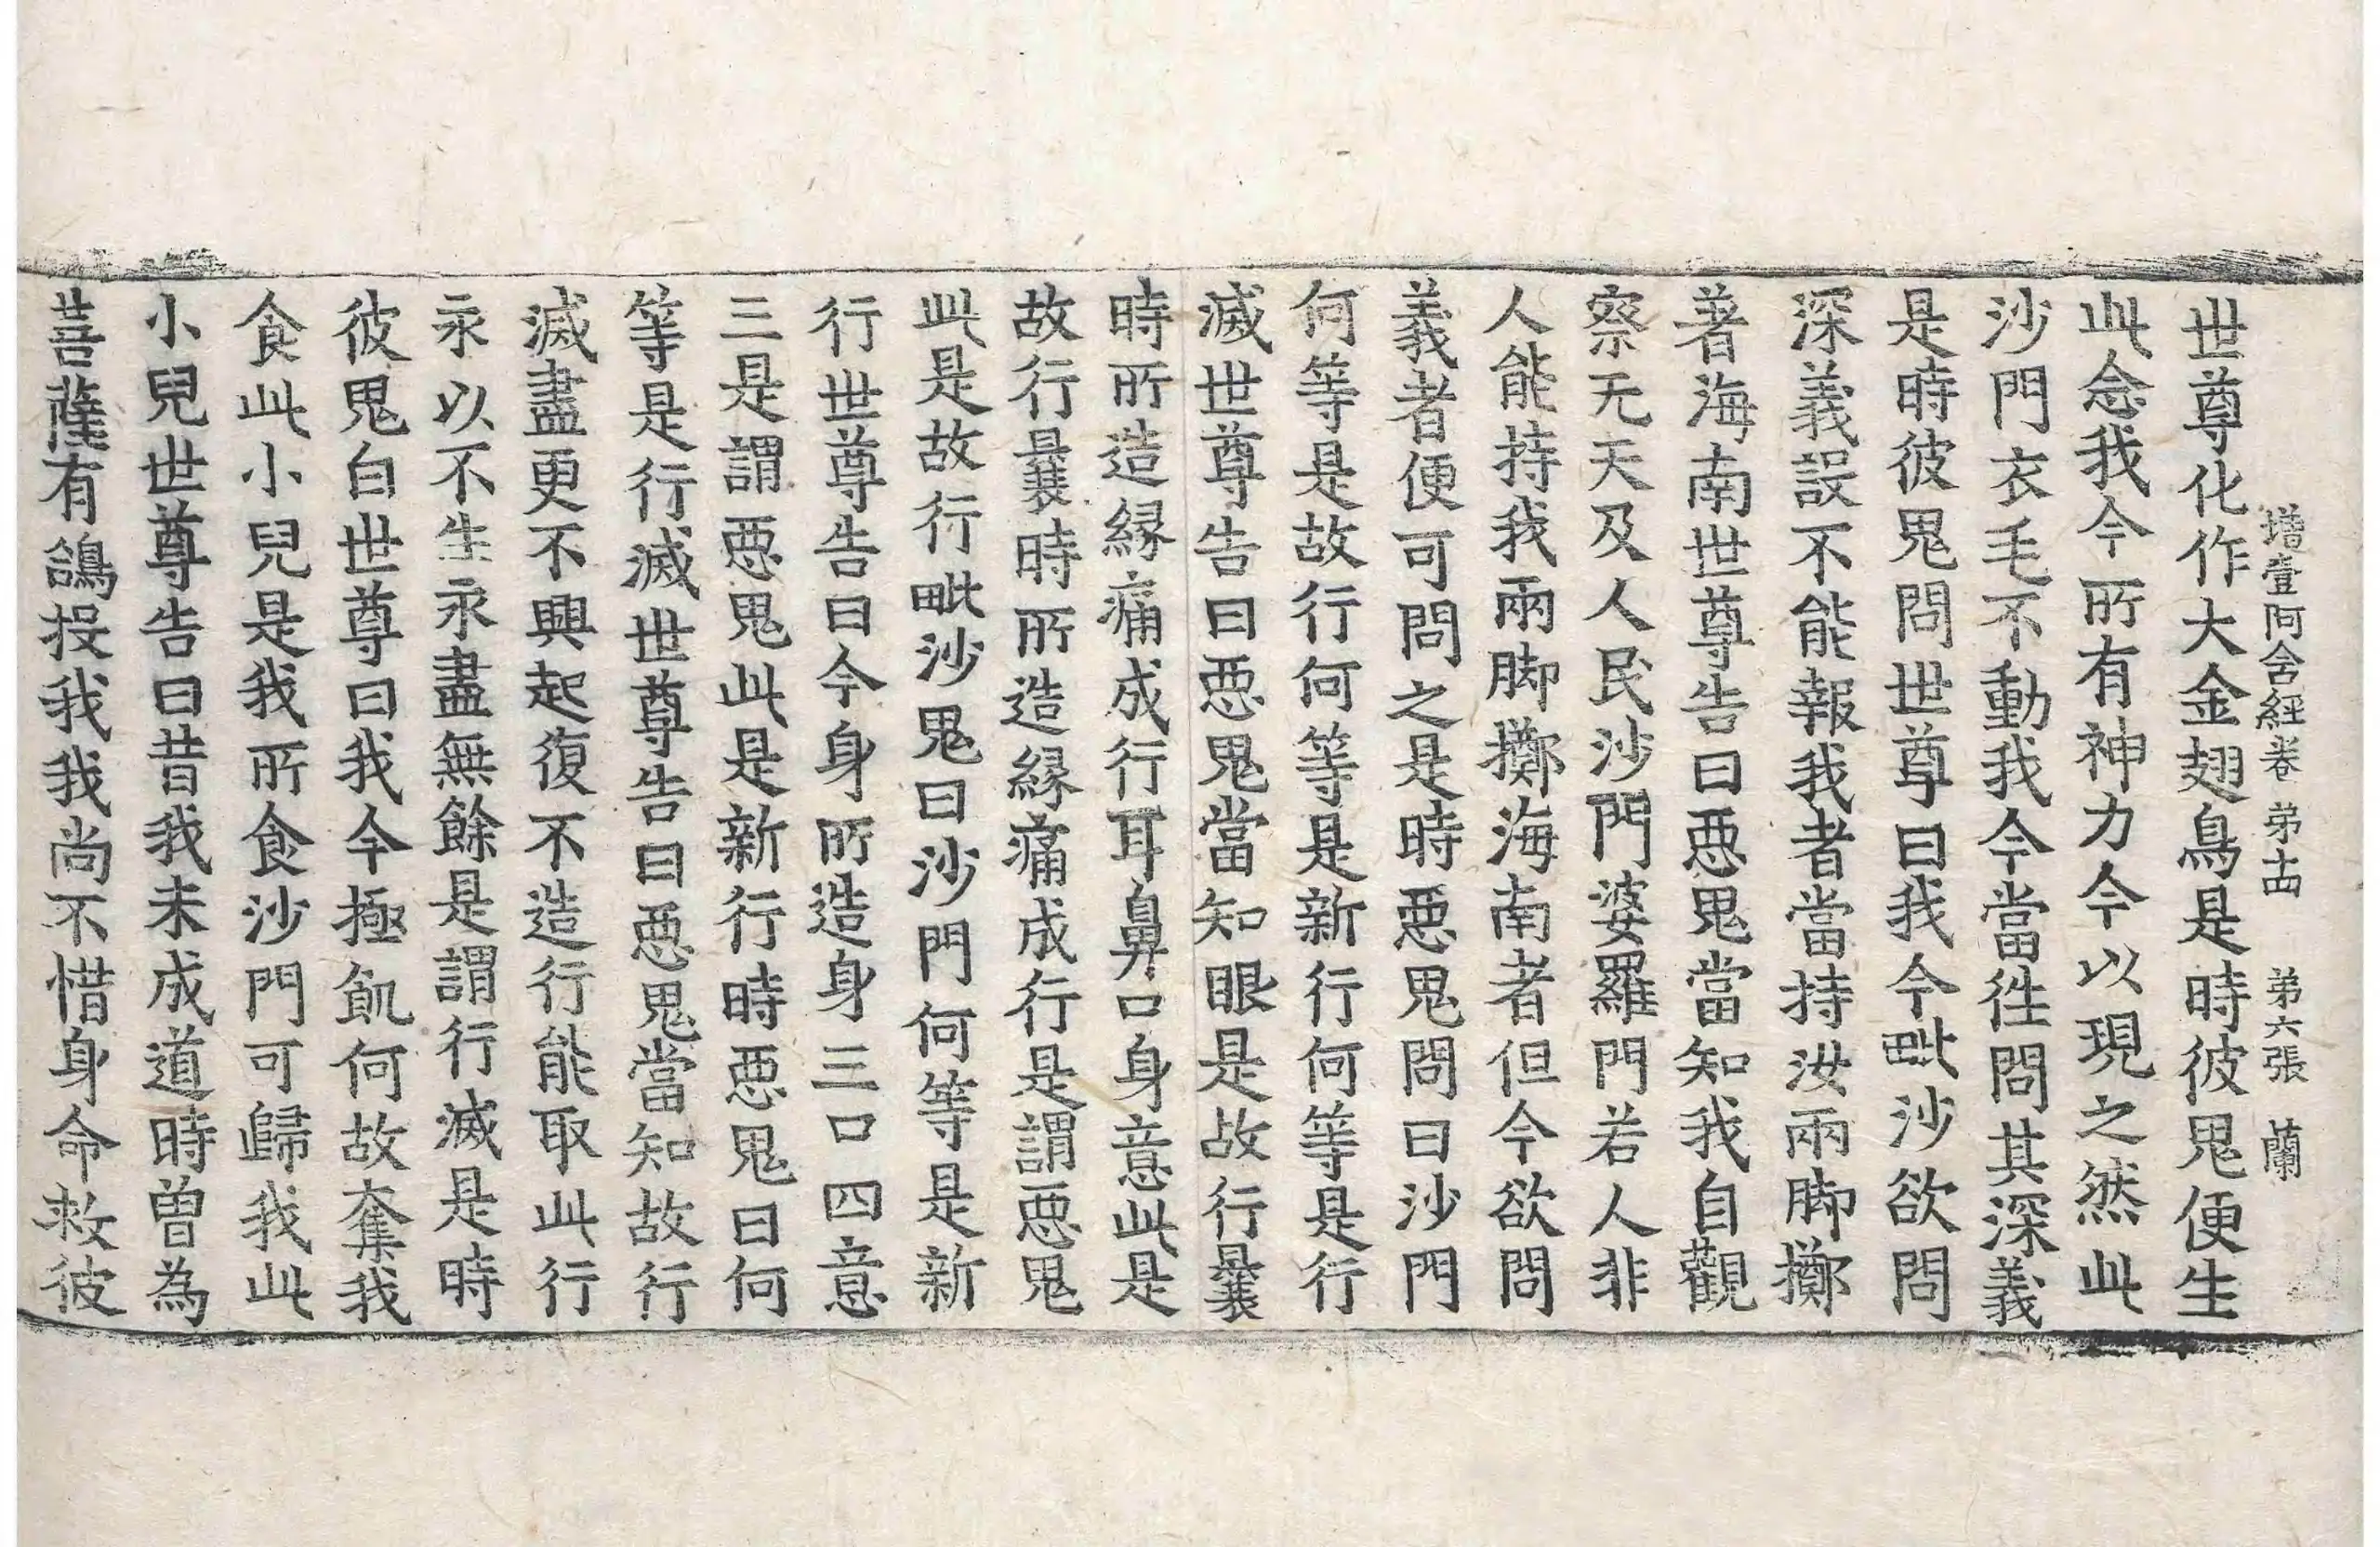 增壹阿含經卷第十四 第六張 蘭
世尊化作大金翅鳥是時彼鬼便生
此念我今所有神力今以現之然此
沙門衣毛不動我今當往問其深義
是時彼鬼問世尊曰我今毗沙欲問
深義設不能報我者當持汝兩脚擲
著海南世尊告曰惡鬼當知我自觀
察无天及人民沙門婆羅門若人非
人能持我兩脚擲海南者但今欲問
義者便可問之是時惡鬼問曰沙門
何等是故行何等是新行何等是行
滅世尊告曰惡鬼當知眼是故行曩
時所造緣痛成行耳鼻口身意此是
故行曩時所造緣痛成行是謂惡鬼
此是故行毗沙鬼曰沙門何等是新
行世尊告曰今身所造身三口四意
三是謂惡鬼此是新行時惡鬼曰何
等是行滅世尊告曰惡鬼當知故行
滅盡更不興起復不造行能取此行
永以不生永盡無餘是謂行滅是時
彼鬼白世尊曰我今極飢何故奪我
食此小兒是我所食沙門可歸我此
小兒世尊告曰昔我未成道時曾為
菩薩有鴿投我我尚不惜身命救彼